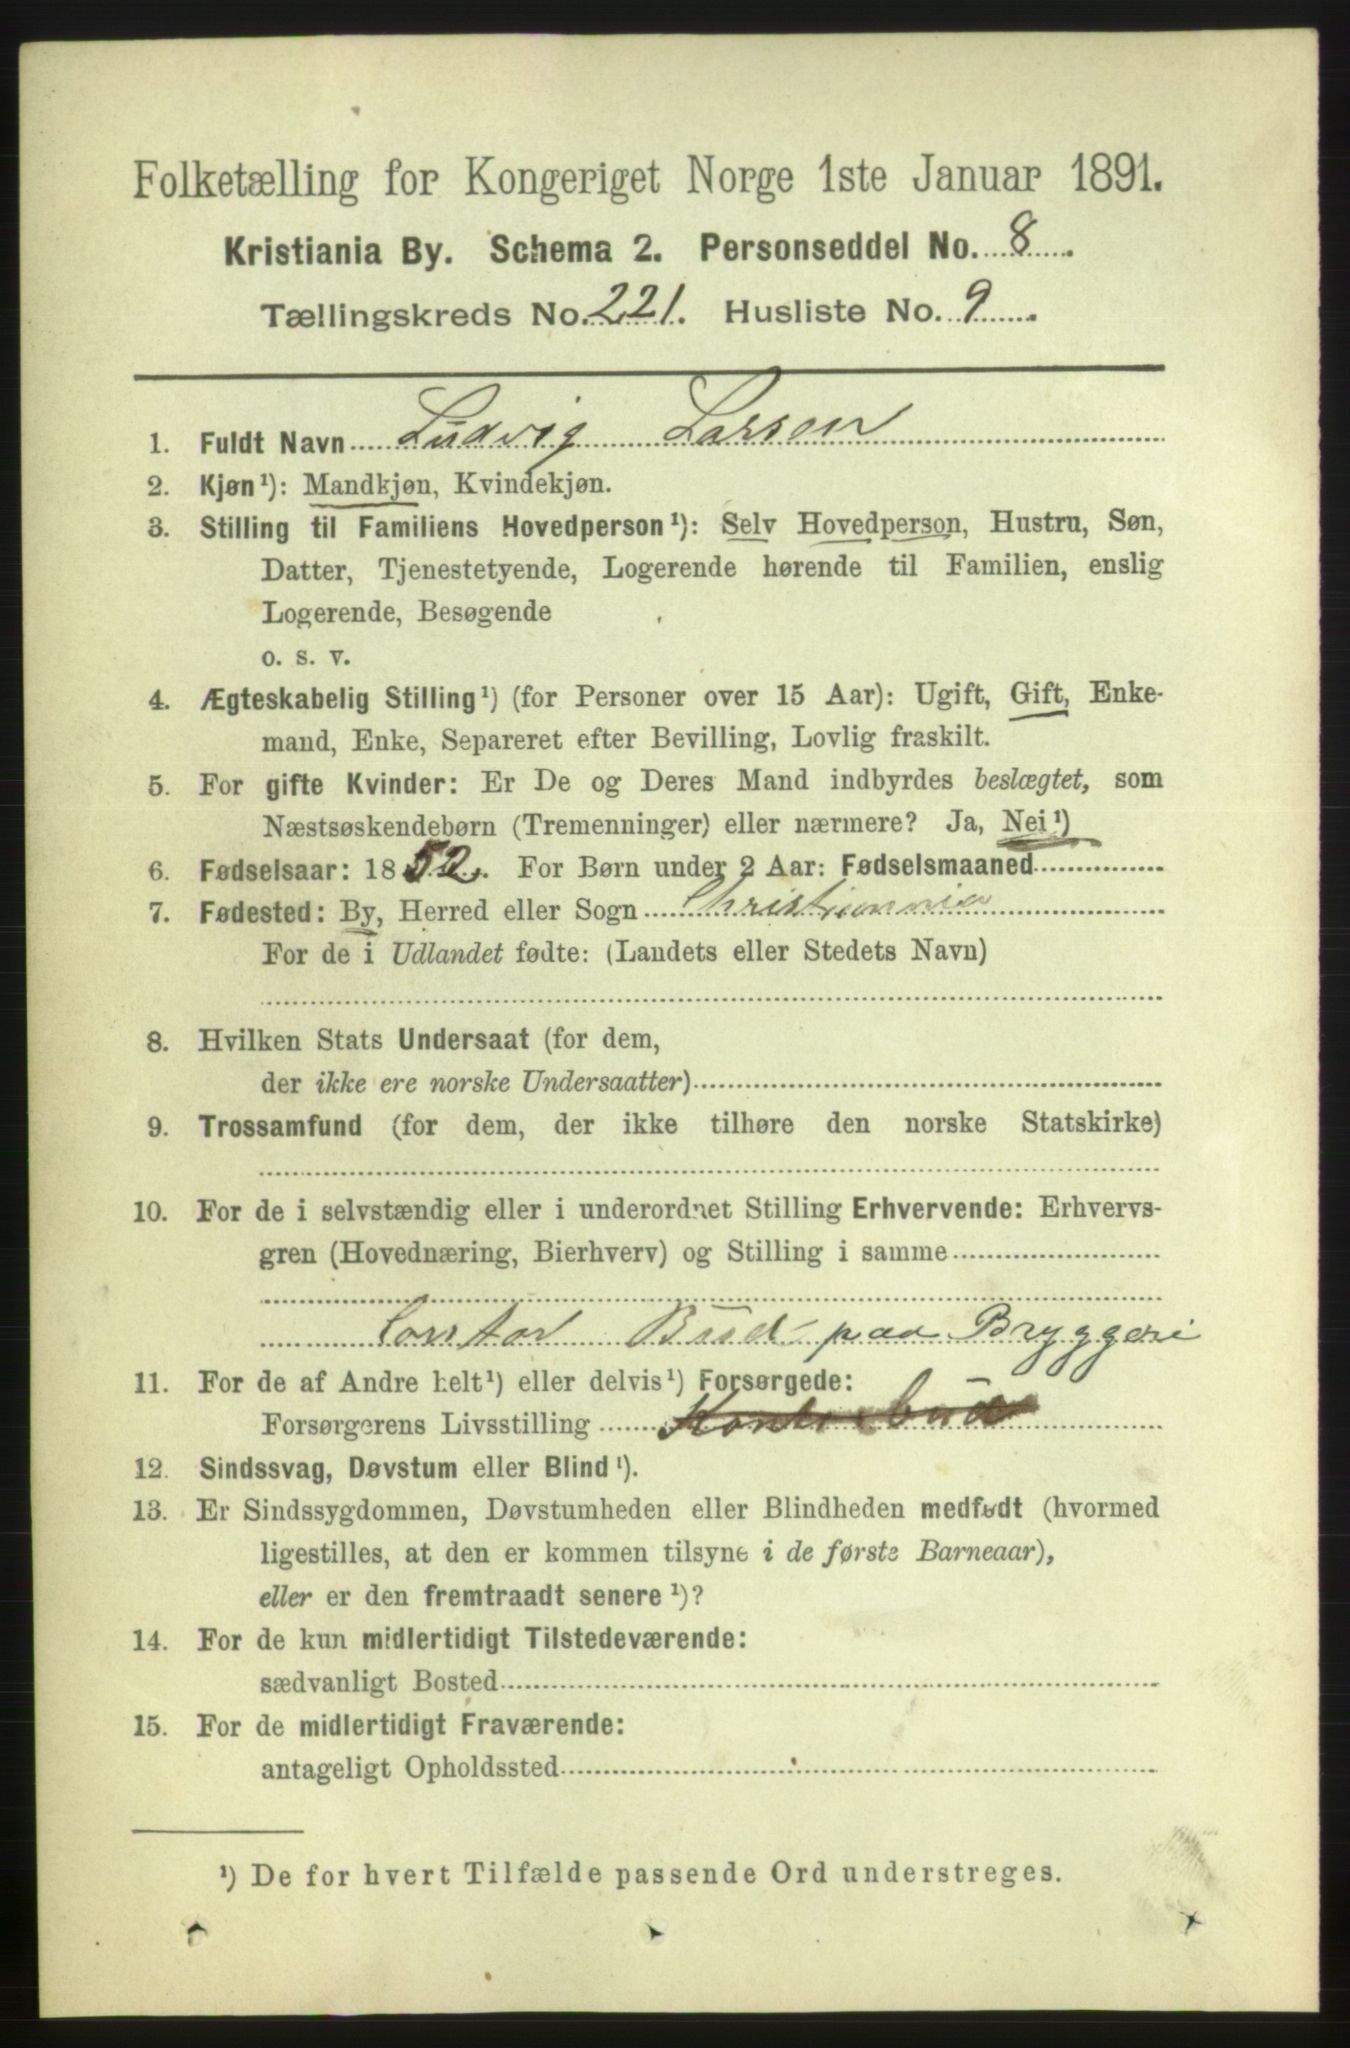 Folketælling for Kongeriget Norge 1ste Januar 1891.
Kristiania By. Schema 2. Personseddel No. 8.
Tællingskreds No. 221. Husliste No. 9.
1. Fuldt Navn Ludvig Larsen
2. Kjøn¹): Mandkjøn, Kvindekjøn.
3. Stilling til Familiens Hovedperson¹): Selv Hovedperson, Hustru, Søn,
Datter, Tjenestetyende, Logerende hørende til Familien, enslig
Logerende, Besøgende
o. s. v.
4. Ægteskabelig Stilling¹) (for Personer over 15 Aar): Ugift, Gift, Enke-
mand, Enke, Separeret efter Bevilling, Lovlig fraskilt.
5. For gifte Kvinder: Er De og Deres Mand indbyrdes beslægtet, som
Næstsøskendebørn (Tremenninger) eller nærmere? Ja, Nei¹)
6. Fødselsaar: 1852. For Børn under 2 Aar: Fødselsmaaned
7. Fødested: By, Herred eller Sogn Christiannia
For de i Udlandet fødte: (Landets eller Stedets Navn)
8. Hvilken Stats Undersaat (for dem,
der ikke ere norske Undersaatter)
9. Trossamfund (for dem, der ikke tilhøre den norske Statskirke)
10. For de i selvstændig eller i underordnet Stilling Erhvervende: Erhvervs-
gren (Hovednæring, Bierhverv) og Stilling i samme
Contor Bud paa Bryggeri
11. For de af Andre helt¹) eller delvis¹) Forsørgede:
Forsørgerens Livsstilling
12. Sindssvag, Døvstum eller Blind¹).
13. Er Sindssygdommen, Døvstumheden eller Blindheden medfødt (hvormed
ligestilles, at den er kommen tilsyne i de første Barneaar),
eller er den fremtraadt senere¹)?
14. For de kun midlertidigt Tilstedeværende:
sædvanligt Bosted
15. For de midlertidigt Fraværende:
antageligt Opholdssted
¹) De for hvert Tilfælde passende Ord understreges.